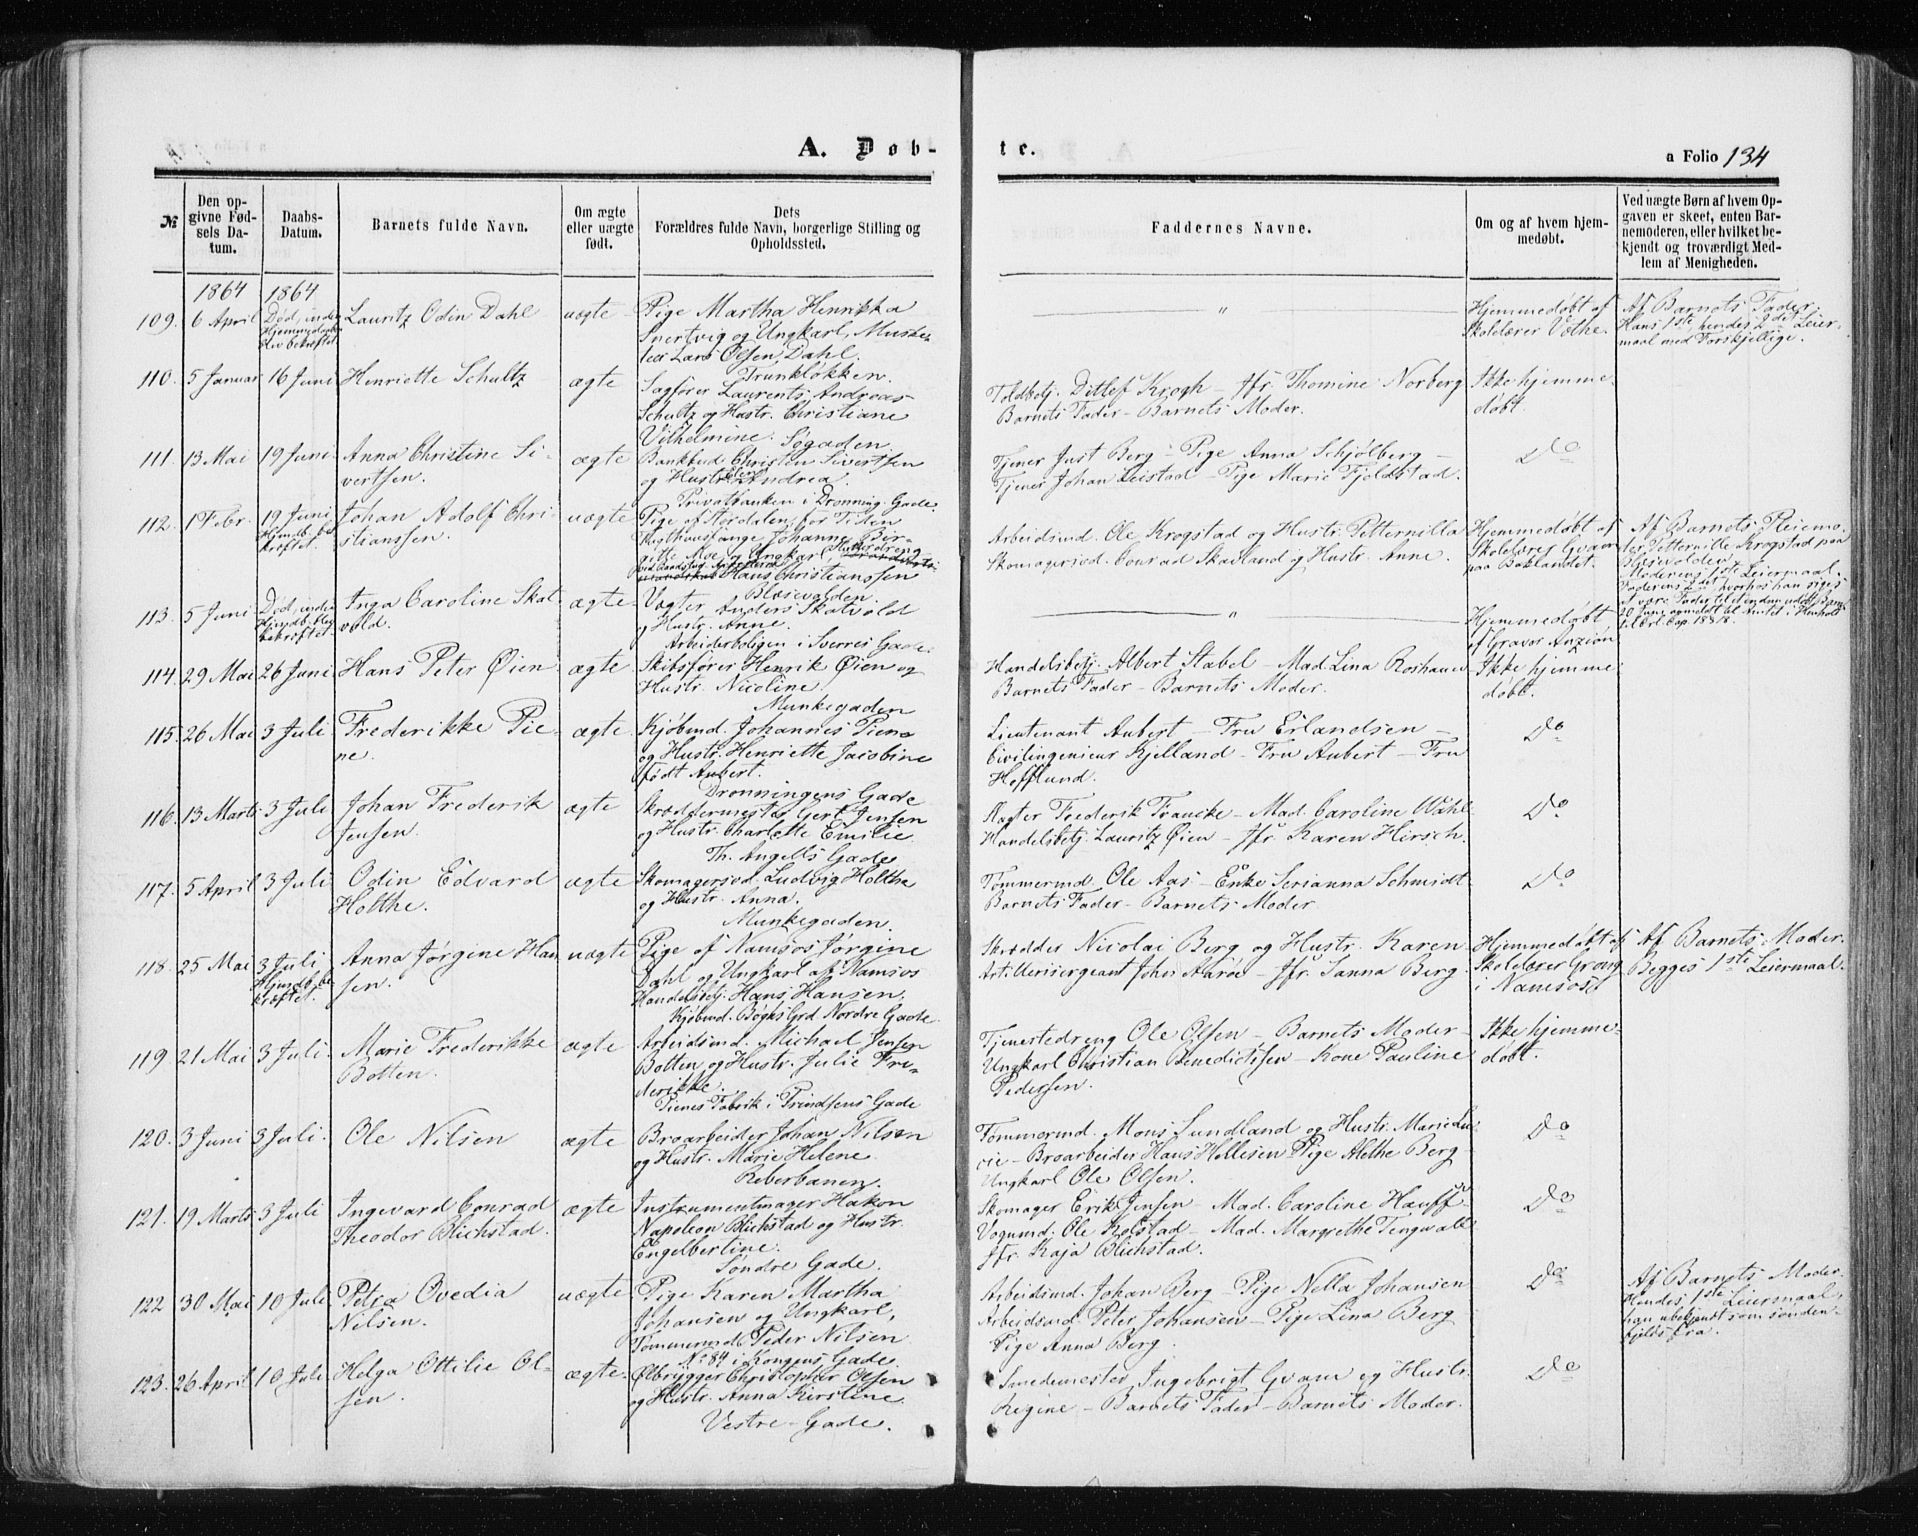 A. Døb-
te.
a Folio 134
№
Den op-
givne Fød-
sels Da-
tum.
Daabs-
Datum.
Barnets fulde Navn.
Om ægte
eller uægte
født.
Dets
Forældres fulde Navn, borgerlige Stilling og
Opholdssted.
Faddernes Navne.
Om og af hvem hjem-
medøbt.
Ved uægte Børn af hvem Op-
gaven er skeet, enten Bar-
nemoderen, eller hvilket be-
kjendt og troværdigt Med-
lem af Menigheden.
1864
1864
109. 6 April
Død, inden
Hjemmedaab
blev bekræftet
Lauritz Odin Dahl
uægte
Pige Martha Henrikka
Snertvig og Ungkarl, Muske-
teer Lars Olsen Dahl.
Trunkløkken.
"
Hjemmedøbt af
Skolelærer Vothe.
Af Barnets Fader.
Hans 1ste, hendes 2det Leier-
maal med Forskjellige.
110. 5 Januar 16 Juni
Henriette Schultz
ægte
Sagfører Laurents Andreas
Schultz og Hustr. Christiane
Vilhelmine. Søgaden.
Toldbetj. Ditlef Krogh - Jfr. Thomine Norberg
Barnets Fader - Barnets Moder.
Ikke hjemme-
døbt.
111. 13 Mai 19 Juni
Anna Christine Si-
vertsen.
ægte
Bankbud Christen Sivertsen
og Hustr. Andrea.
Privatbanken i Dronning. Gade
Tjener Just Berg - Pige Anna Schjølberg -
Tjener Johan Leistad - Pige Marie Fjeldstad.
Do
112. 1 Febr. 19 Juni
Hjmdb. be-
kræftet.
Johan Adolf Chri-
stianssen.
uægte
Pige af Stordalen, for Tiden
Rusthausfange Johanne Bir-
gitte Moe og Ungkarl,
Hans Christianssen
Blæsevolden.
Arbeidsmd. Ole Krogstad og Hustr. Petternilla
Skomagersvd. Conrad Skavland og Hustr. Anne.
Hjemmedøbt af
Skolelærer Gvam
paa Baklandet.
Af Barnets Pleiemo-
der, Petternille Krogstad paa
Blæsevolden.
Moderens 1ste Leiermaal.
Faderens 2det,
113. 5 Juni
Død, inden
Hjmdb. blev
bekræftet.
Inga Caroline Skat-
vold.
ægte
Vægter Anders Skatvold
og Hustr. Anne.
Arbeiderboligen i Sverres Gade.
"
Hjemmedøbt
af Graver Anzion
114. 29 Mai 26 Juni
Hans Peter Øien
ægte
Skibsfører Henrik Øien og
Hustr. Nicoline.
Munkegaden
Handelsbetj. Albert Stabel - Mad. Lina Roshauw
Barnets Fader - Barnets Moder.
Ikke hjemme
døbt.
115. 26 Mai 3 Juli
Frederikke Pie-
ne.
ægte
Kjøbmd. Johannes Piene
og Hustr. Henriette Jacobine
født Aubert.
Dronningens Gade
Lieutenant Aubert - Fru Erlandsen -
Civilingenieur Kjelland - Fru Aubert - Fru
Hofflund.
Do
116. 13 Marts 3 Juli
Johan Frederik
Jensen.
ægte
Skræddermester Gert Jensen
og Hustr. Charlotte Emilie.
Th. Angells Gade
Slagter Frederik Francke - Mad. Caroline Wahl
Handelsbetj. Lauritz Øien - Jfr. Karen Hirsch.
Do
117. 5 April 3 Juli
Odin Edvard
Holthe.
ægte
Skomagersvd. Ludvig Holthe
og Hustr. Anna.
Munkegaden.
Tømmermd. Ole Aas - Enke Serianna Schmidt
Barnets Fader - Barnets Moder
Do
118. 25 Mai 3 Juli
Hjmdb. be-
kræftet.
Anna Jørgine Han
sen.
uægte
Pige af Namsos Jørgine
Dahl og Ungkarl af Namsos
Handelsbetj. Hans Hansen.
Kjøbmd. Bøghs Grd Nordre Gade.
Skrædder Nicolai Berg og Hustr. Karen
Artillerisergeant John Aarøe - Jfr. Sanna Berg.
Hjemmedøbt af
Skolelærer Grong
i Namsos
Af Barnets Moder.
Begges 1ste Leiermaal.
119. 21 Mai 3 Juli.
Marie Frederikke
Botten.
ægte
Arbeidsmd. Michael Jensen
Botten og Hustr. Julie Fre-
derikke.
Pienes Fabrik i Prindsens Gade
Tjenestedreng Ole Olsen - Barnets Moder -
Ungkarl Christian Benedictsen - Kone Pauline
Pedersen.
Ikke hjemme-
døbt.
120. 3 Juni 3 Juli.
Ole Nilsen
ægte
Broarbeider Johan Nilsen
og Hustr. Marie Helene.
Reberbanen.
Tømmermd. Mons Sundland og Hustr. Marie Lu-
cie - Broarbeider Hans Hellesen Pige Alethe Berg -
Ungkarl Ole Olsen.
Do
121. 19 Marts 3 Juli
Ingevard Conrad
Theodor Blichstad.
ægte
Instrumentmager Hakon
Napoleon Blichstad og Hustr.
Engelbertine.
Søndre Gade.
Skomager Erik Jensen - Mad. Caroline Hauff
Vognmd. Ole Kolstad - Mad. Margrethe Tengvall
Jfr. Kaja Blichstad.
Do
122 30 Mai 10 Juli
Petra Ovedia
Nilsen.
uægte
Pige Karen Martha
Johansen og Ungkarl,
Tømmermd. Peder Nilsen
No 84 i Kongens Gade.
Arbeidsmd. Johan Berg - Pige Nella Johansen
Arbeidsmd. Peter Johansen - Pige Lina Berg
Pige Anna Berg.
Do
Af Barnets Moder.
Hendes 1ste Leiermaal,
han ubekjendt som sønden-
fjelds fra.
123. 26 April 10 Juli
Helga Ottilie Ol-
sen.
ægte.
Ølbrygger Christopher Olsen
og Hustr. Anna Kirstine
Vestre Gade.
Smedemester Ingebrigt Gvam og Hustr.
Regine - Barnets Fader - Barnets Moder.
Do